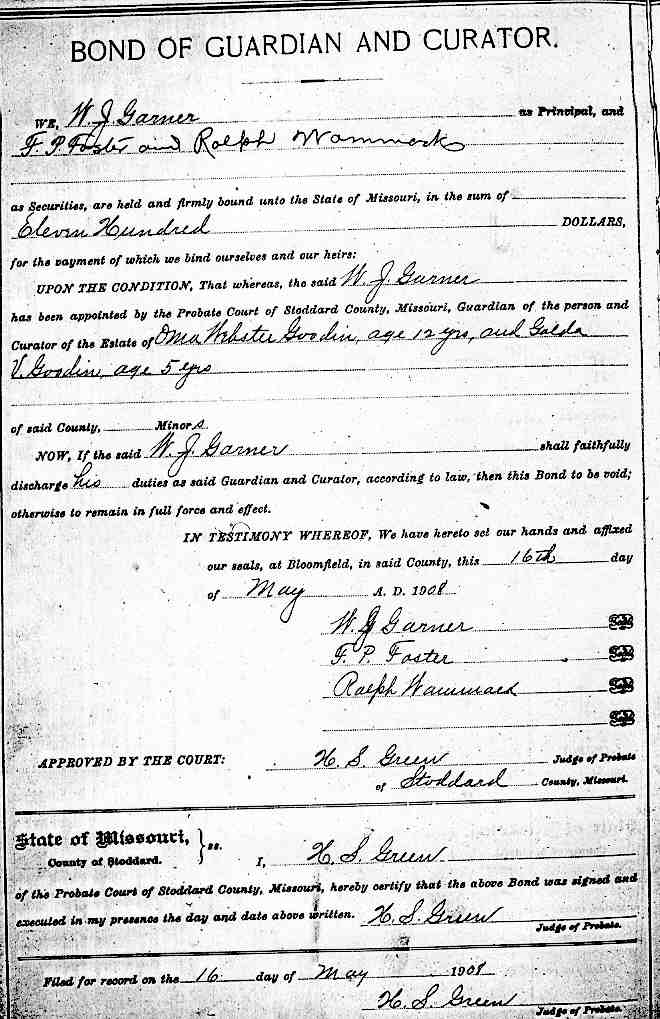 BOND OF GUARDIAN AND CURATOR.
WE, W. J. Garner as Principal, and
F. P. Foster and Ralph Wammack
as Securities, are held and firmly bound unto the State of Missouri, in the sum of
Eleven Hundred DOLLARS,
for the payment of which we bind ourselves and our heirs:
UPON THE CONDITION, That whereas, the said W. J. Garner
has been appointed by the Probate Court of Stoddard County, Missouri, Guardian of the person and
Curator of the Estate of Oma Webster Goodin, age 12 yrs, and Golda
V. Goodin, age 5 yrs
of said County, Minors.
NOW, If the said W. J. Garner shall faithfully
discharge his duties as said Guardian and Curator, according to law, then this Bond to be void;
otherwise to remain in full force and effect.
IN TESTIMONY WHEREOF, We have hereto set our hands and affixed
our seals, at Bloomfield, in said County, this 16th day
of May A. D. 1908
W J Garner Seal
F. P. Foster Seal
Ralph Wammack Seal
Seal
APPROVED BY THE COURT: H. S. Green Judge of Probate
of Stoddard County, Missouri.
State of Missouri, } ss.
County of Stoddard.
I, H. S. Green
of the Probate Court of Stoddard County, Missouri, hereby certify that the above Bond was signed and
executed in my presence the day and date above written. H. S. Green
Judge of Probate.
Filed for record on the 16 day of May 1908
H. S. Green
Judge of Probate.